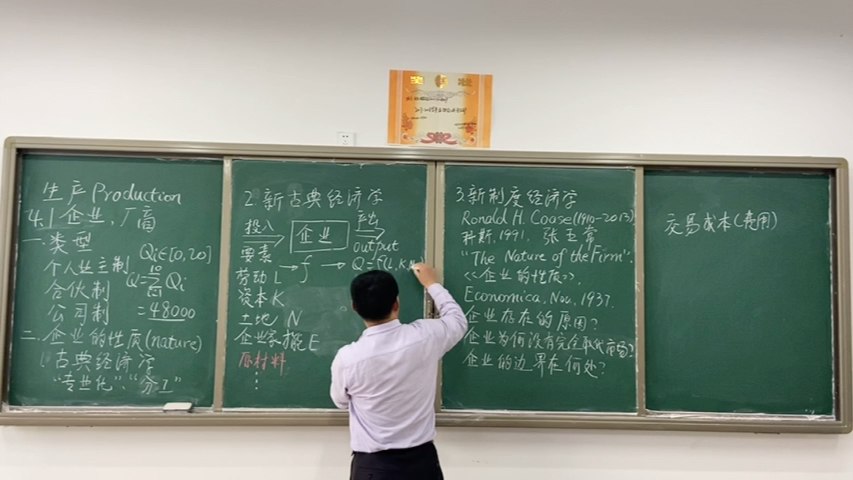 生产 Production
4.1 企业,厂商
一.类型
Qi∈[0,20]
个人业主制
合伙制
公司制
=48000
二.企业的性质(nature)
1.古典经济学
"专业化""分工"
2.新古典经济学
投入
企业
产出
output
要素
→ f → Q=f(L,K,N
劳动 L
资本 K
土地 N
企业家才能 E
原材料
3.新制度经济学
Ronald H. Coase(1910-2013)
科斯,1991, 张五常
"The Nature of the Firm".
<<企业的性质>>.
Economica, Nov, 1937.
企业存在的原因?
企业为何没有完全取代市场?
企业的边界在何处?
交易成本(费用)